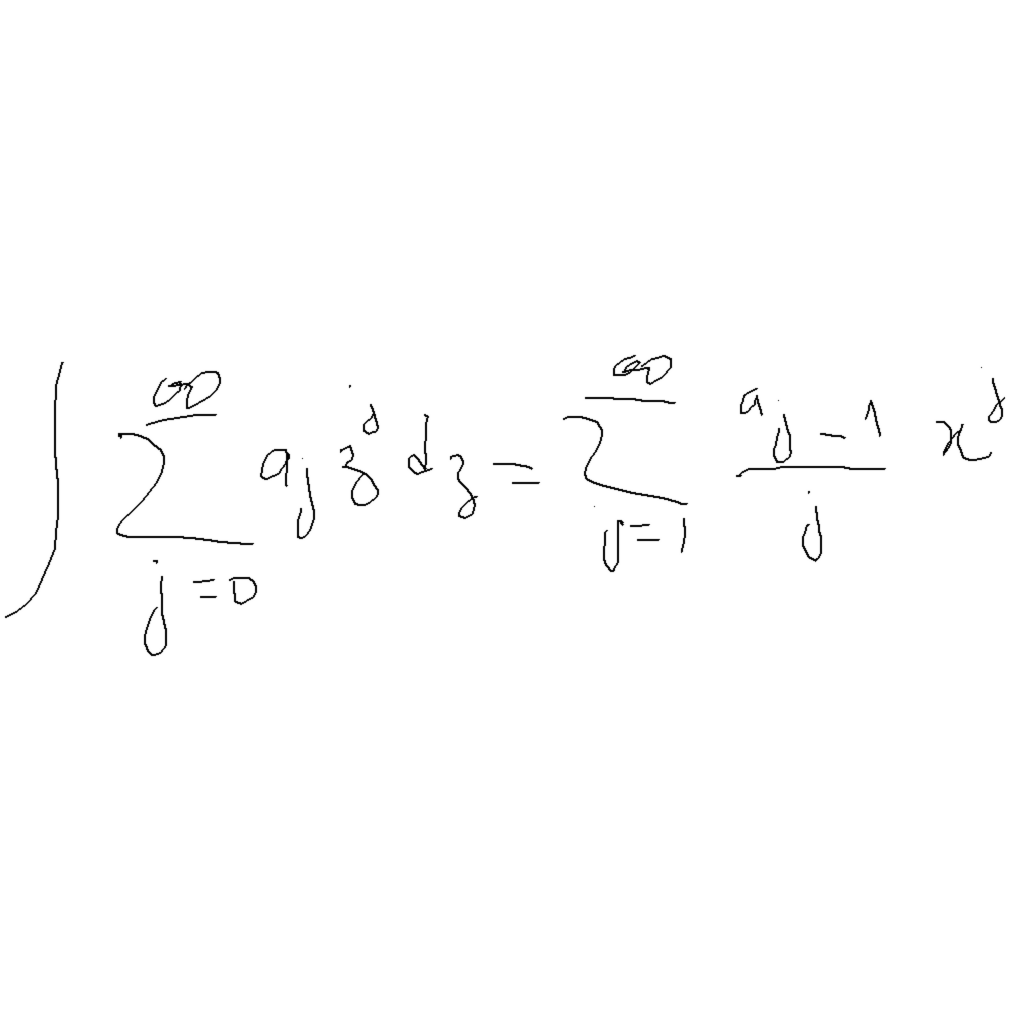 \int \sum_{j=0}^{\infty} a_j z^j dz = \sum_{j=1}^{\infty} \frac{a_{j-1}}{j} x^j